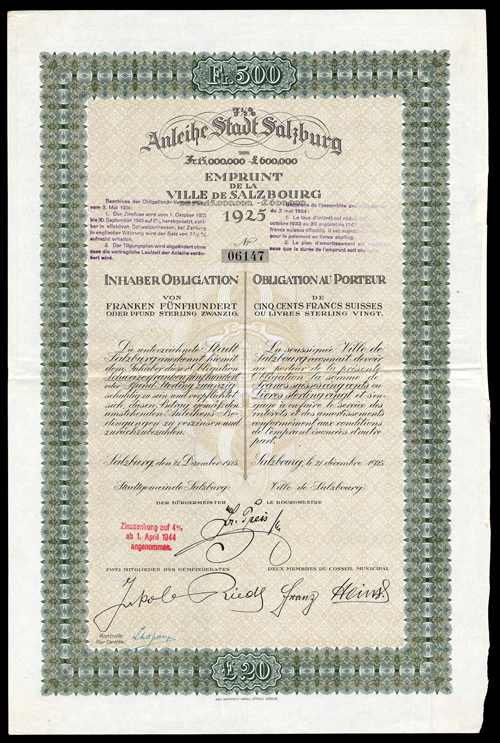 Fr. 500
7½%
Anleihe Stadt Salzburg
VON
Fr. 15.000.000 - £ 600.000
EMPRUNT
DE LA
VILLE DE SALZBOURG
15.000.000
1925
Beschluss der Obligationär-Versammlung
vom 3. Mai 1934:
1. Der Zinsfuss wird vom 1. Oktober 1933
bis 30. September 1943 auf herabgesetzt, zahl-
bar in effektiven Schweizerfranken, bei Zahlung
in englischer Währung wird der Satz von 7½%
aufrecht erhalten.
2. Der Tilgungsplan wird abgeändert ohne
dass die vertragliche Laufzeit der Anleihe verän-
dert wird.
de l'assemblée
du 3 mai 1934:
1. Le taux d'intérêt est
octobre 1933 au 30 septembre
francs suisses effectifs, il est
pour le paiement en livres sterling.
2. Le plan d'amortissement
que la durée de l'emprunt soit
No
06147
INHABER OBLIGATION
VON
FRANKEN FÜNFHUNDERT
ODER PFUND STERLING ZWANZIG.
Die unterzeichnete Stadt
Salzburg anerkennt hiermit
dem Inhaber dieser Obligation
Schweizerfranken fünfhundert
oder Pfund Sterling zwanzig
schuldig zu sein und verpflichtet
sich, diesen Betrag gemäß den
umstehenden Anleihens-Be-
dingungen zu verzinsen und
zurückzubezahlen.
Salzburg, den 21. Dezember 1925.
Stadtgemeinde Salzburg:
OBLIGATION AU PORTEUR
DE
CINQ CENTS FRANCS SUISSES
OU LIVRES STERLING VINGT.
La soussignée Ville de
Salzbourg reconnait devoir
au porteur de la présente
Obligation la somme de
Francs suisses cinq cents ou
Livres sterling vingt et s'en-
gage à en faire le service des
intérêts et des amortissements
conformément aux conditions
de l'emprunt énoncées d'autre
part.
Salzbourg, le 21 décembre 1925.
Ville de Salzbourg:
DER BÜRGERMEISTER
LE BOURGMESTRE
Preis
Zinssenkung auf 4%
ab 1. April 1944
angenommen.
ZWEI MITGLIEDER DES GEMEINDERATES
DEUX MEMBRES DU CONSEIL MUNICIPAL
Jakob
Franz
Kontrolle:
Pour Contrôle:
£ 20
ART. INSTITUT ORELL FÜSSLI ZÜRICH